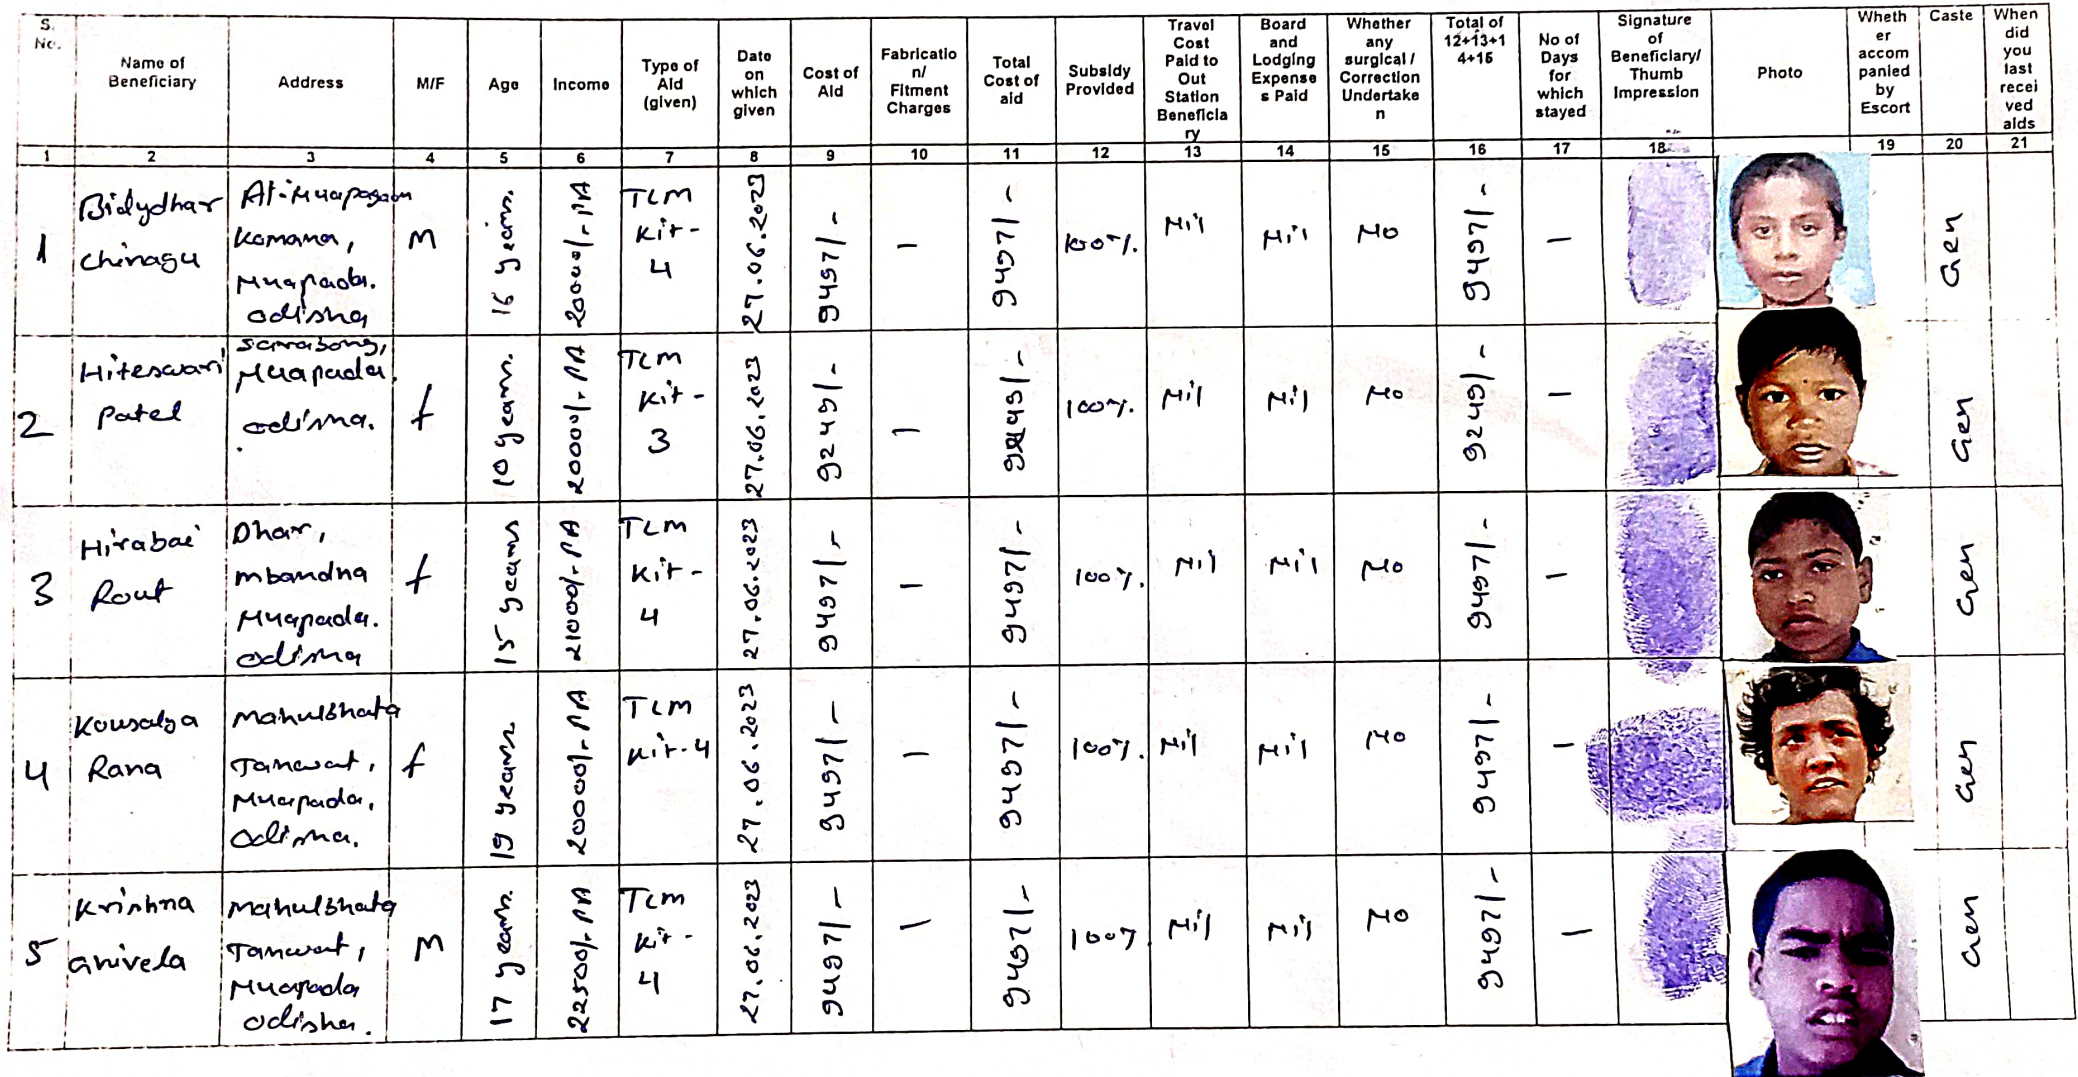 S. No.
Name of Beneficiary
Address
M/F
Age
Income
Type of Aid (given)
Date on which given
Cost of Aid
Fabricatio n/ Fitment Charges
Total Cost of aid
Subsidy Provided
Travel Cost Paid to Out Station Beneficia ry
Board and Lodging Expense s Paid
Whether any surgical / Correction Undertake n
Total of 12+13+1 4+15
No of Days for which stayed
Signature of Beneficiary/ Thumb Impression
Photo
Wheth er accom panied by Escort
Caste
When did you last recei ved aids
1 2 3 4 5 6 7 8 9 10 11 12 13 14 15 16 17 18 19 20 21
1
Bidydhar
Chinagu
Komana,
Nuapada.
Odisha
M
16 years.
20000/- PA
TLM
Kit-
4
27.06.2023
9497/-
—
9497/-
100%.
Nil
Nil
No
9497/-
—
Gen
2
Hiteswari
Patel
Nuapada
Odisha.
f
10 years.
20000/- PA
TLM
Kit-
3
27.06.2023
9249/-
—
100%.
Nil
Nil
No
9249/-
—
Gen
3
Hirabai
Rout
Dhar,
mbandha
Nuapada.
Odisha
f
15 years
21000/- PA
TLM
Kit-
4
27.06.2023
9497/-
—
9497/-
100%.
Nil
Nil
No
9497/-
—
Gen
4
Kousalya
Rana
Mahulbhata
Tanwat,
Nuapada,
Odisha.
f
19 years.
20000/- PA
TLM
Kit-4
27.06.2023
9497/-
—
9497/-
100%.
Nil
Nil
No
9497/-
—
Gen
5
Krishna
Mahulbhata
Tanwat,
Nuapada
Odisha.
M
17 years.
22500/- PA
TLM
Kit-
4
27.06.2023
9497/-
—
9497/-
100%
Nil
Nil
No
9497/-
—
Gen